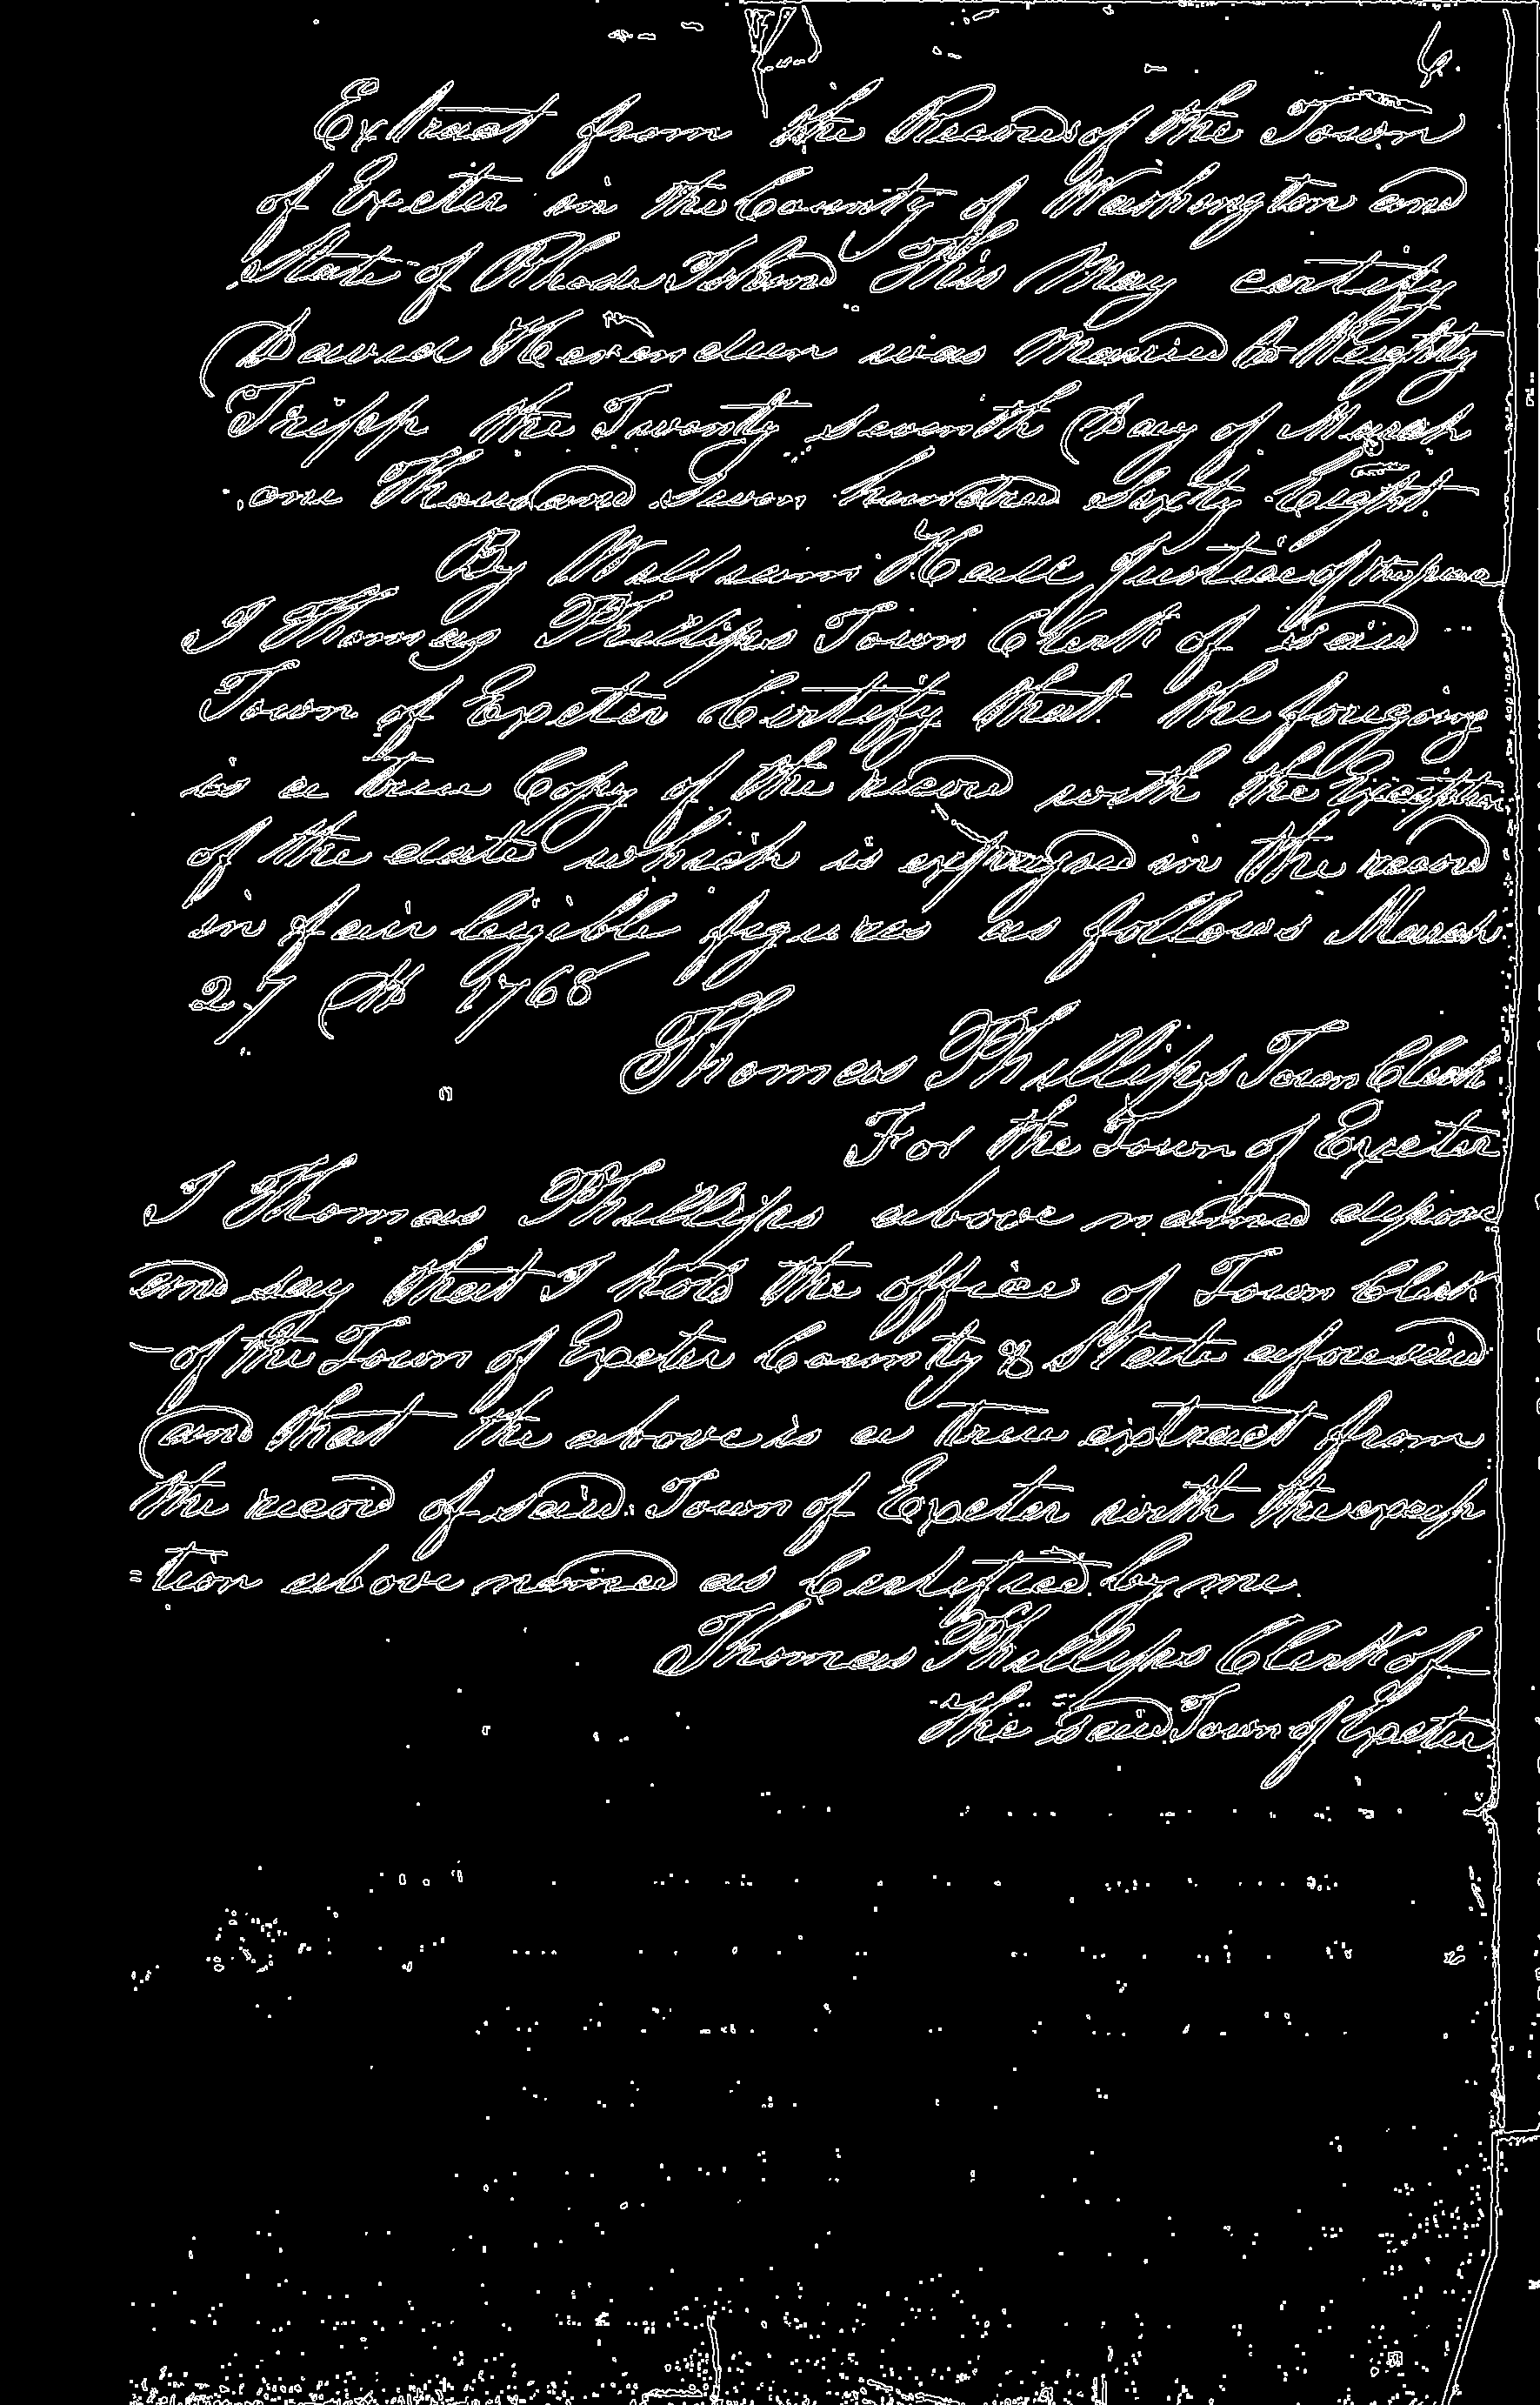 6.
Extract from the Records of the Town
of Exeter in the County of Washington and
State of Rhode Island This May certify
David Herendeen was Married to Weighty
Tripp the Twenty seventh Day of March
one Thousand Seven hundred Sixty Eight
By William Hall Justice of the peace
I Thomas Phillips Town Clerk of said
Town of Exeter Certify that the forgoing
is a true Copy of the record with the Exception
of the date which is expressed in the record
in fair legible figures as follows March
27 AD 1768
Thomas Phillips Town Clerk
For the Town of Exeter
I Thomas Phillips above named depose
and say that I hold the office of Town Clerk
of the Town of Exeter County & State aforesaid
and that the above is a true extract from
the record of said Town of Exeter with the excep
=tion above named as Certified by me.
Thomas Phillips Clerk of
the said Town of Exeter